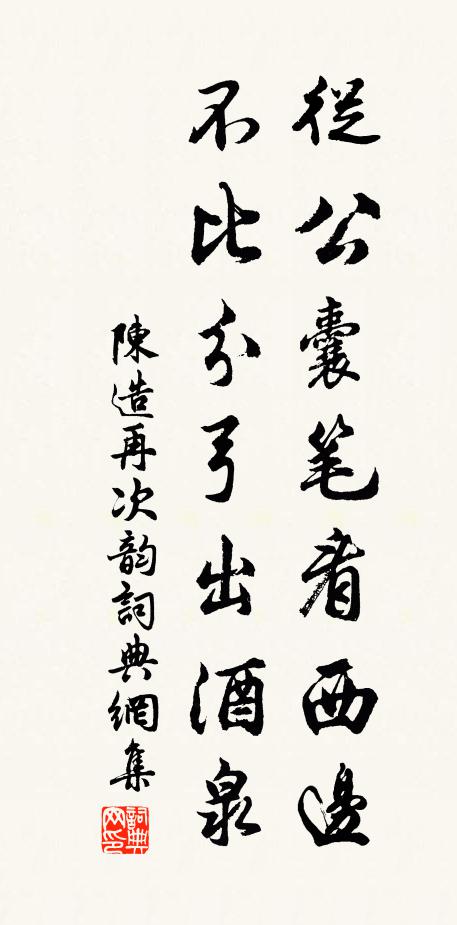 從公囊笔看西邊
不比分弓出酒泉
陳造再次韵詞典網集
詞典网印